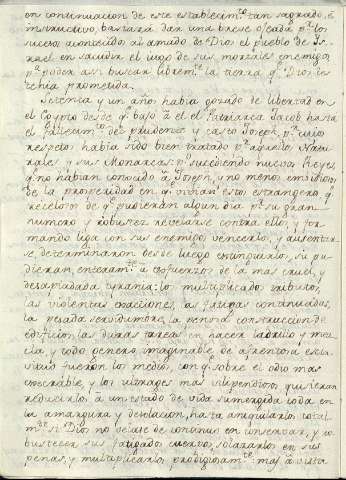 en continuacion de este establecim.to tan sagrado, e
instructivo, bastará dar una breve ojeada p.r los
sucesos acontecidos al amado de Dios el pueblo de Is-
rael en sacudir el iugo de sus mortales enemigos
p.a poder assi buscar librem.te la tierra q.e Dios les
tenia prometida.
Setenta y un años havia gozado de libertad en
el Egypto desde q.e bajó a el el Patriarca Jacob hasta
el fallecim.to del prudente y casto Joseph, p.r cuios
respetos havia sido bien tratado p.r aquellos Natu-
rales y sus Monarcas: p.o sucediendo nuevos Reyes,
q.e no havian conocido a Joseph, y no menos embidiosos
de la prosperidad en q.e vivian estos estrangeros q.e
recelosos de q.e pudieran algun dia p.r su gran
numero y robustez revelarse contra ellos, y for-
mando liga con sus enemigos vencerlos, y ausentar-
se, determinaron desde luego extinguirlos, si pu-
dieran, enteram.te a esfuerzos de la mas cruel, y
desapiadada tyrania: los multiplicados tributos,
las violentas exacciones, las fatigas continuadas,
la pesada servidumbre, la penosa construccion de
edificios, las duras tareas en hacer ladrillo y mez-
cla, y todo genero imaginable de afrentosa escla-
vitud fueron los medios, con q.e sobre el odio mas
execrable, y los ultrages mas vilipendiosos quisieran
reducirlos a un estado de vida sumergida toda en
la amargura y desolacion, hasta aniquilarlos total-
m.te si Dios no velase de continuo en conservar, y ro-
bustecer sus fatigados cuerpos, solazarlos en sus
penas, y multiplicarlos prodigiosam.te mas a vista